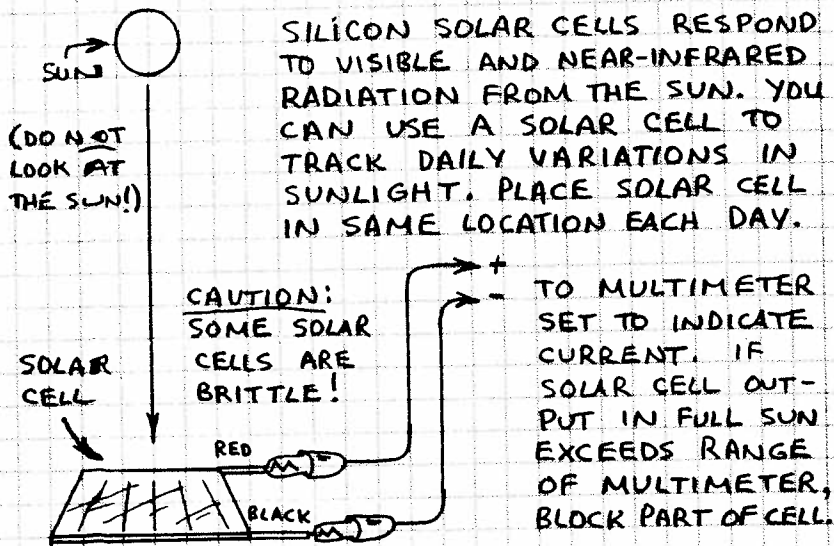 SILICON SOLAR CELLS RESPOND
TO VISIBLE AND NEAR-INFRARED
RADIATION FROM THE SUN. YOU
CAN USE A SOLAR CELL TO
TRACK DAILY VARIATIONS IN
SUNLIGHT. PLACE SOLAR CELL
IN SAME LOCATION EACH DAY.
SUN
(DO NOT
LOOK AT
THE SUN!)
CAUTION:
SOME SOLAR
CELLS ARE
BRITTLE!
SOLAR
CELL
RED
BLACK
+
-
TO MULTIMETER
SET TO INDICATE
CURRENT. IF
SOLAR CELL OUT-
PUT IN FULL SUN
EXCEEDS RANGE
OF MULTIMETER,
BLOCK PART OF CELL.